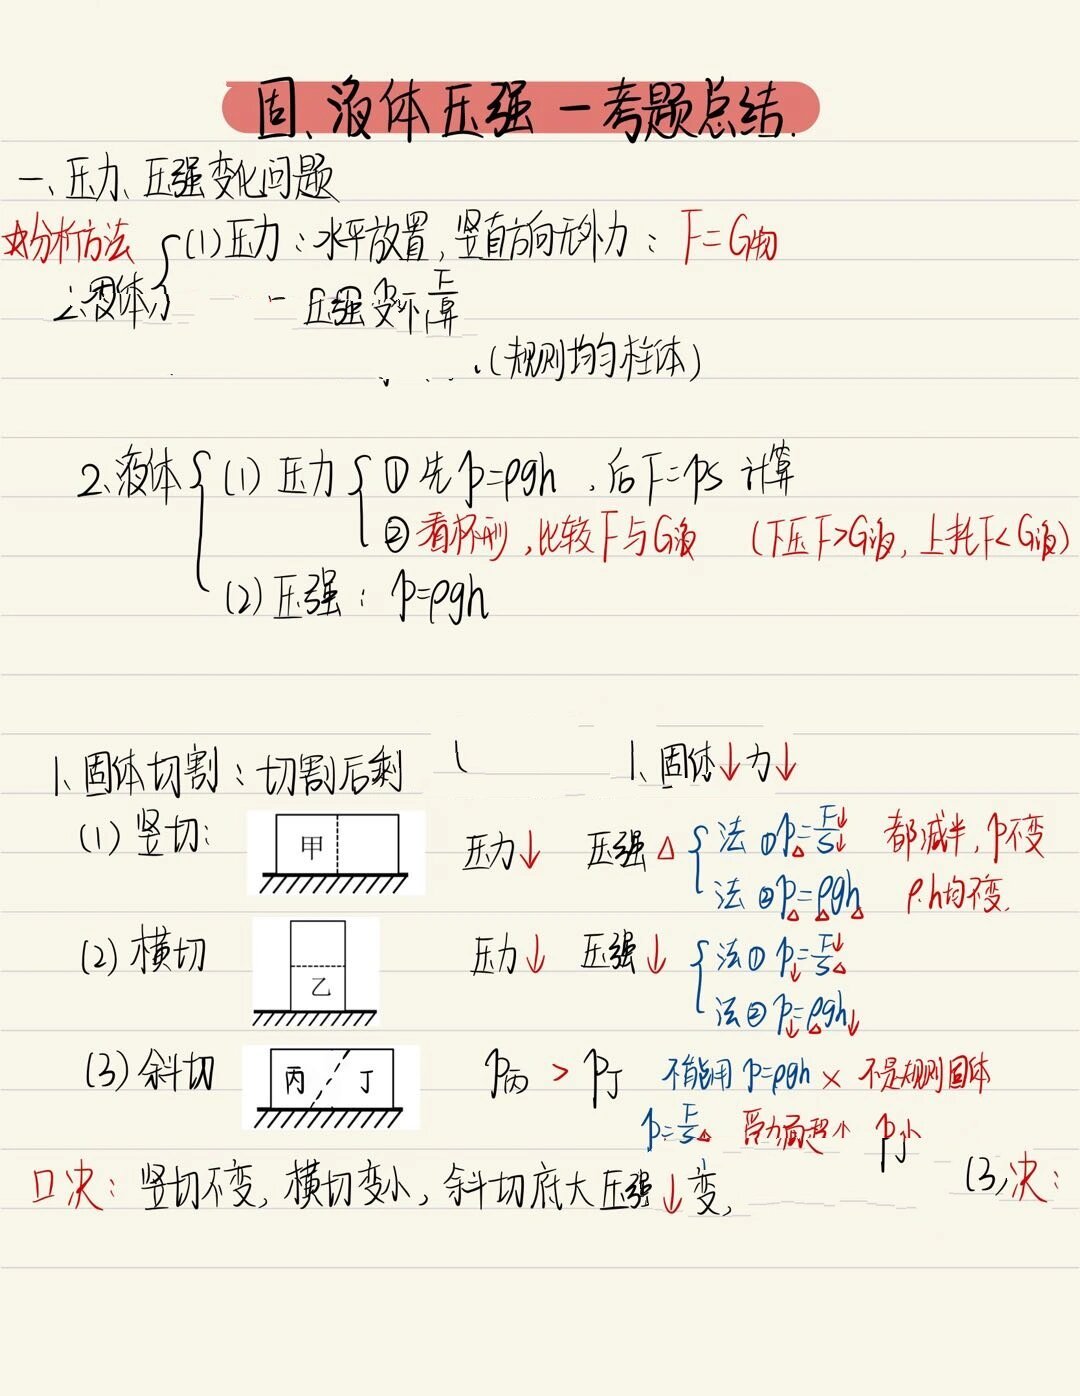 固、液体压强一考题总结.
一、压力、压强变化问题
☆分析方法 (1) 压力：水平放置，竖直方向无外力：F=G物
压强
(规则均匀柱体)
2.液体 (1) 压力 ① 先p=ρgh，后F=pS 计算
② 看杯形，比较F与G液 (下压F>G液，上托F<G液)
(2) 压强：p=ρgh
1、固体切割：切割后剩 1、固体↓力↓
(1) 竖切： 甲 压力↓ 压强△ 法①p△=F↓/S↓ 都减半，p不变
法②p△=ρ△gh△ ρ.h均不变.
(2) 横切 乙 压力↓ 压强↓ 法① p↓=F↓/S△
法② p↓=ρ△gh↓
(3) 斜切 丙 丁 p丙 > p丁 不能用 p=ρgh × 不是规则固体
p=F/S△ 受力面 小 p小
口决：竖切不变，横切变小，斜切底大压强↓变， (3)决：